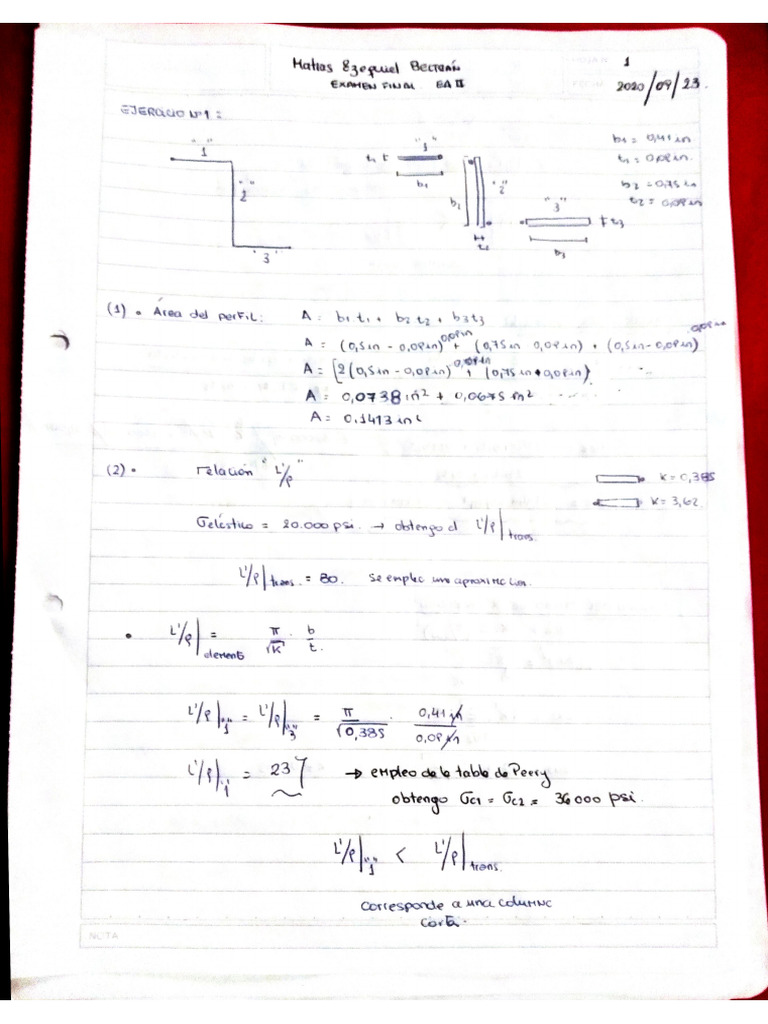 Matias Ezequiel Beltrán
1
EXAMEN FINAL EA II
2020/09/23.
EJERCICIO Nº1:
"1"
"2"
"3"
t1
"1"
b1
b2
"2"
"3"
t3
b3
b1 = 0,41 in
t1 = 0,09 in.
b2 = 0,75 in
t2 = 0,09 in
(1) • Área del perfil: A = b1 t1 + b2 t2 + b3 t3
A = (0,5 in - 0,09 in) 0,09 in + (0,75 in 0,09 in) + (0,5 in - 0,09 in) 0,09 in
A = [2 (0,5 in - 0,09 in) 0,09 in + (0,75 in * 0,09 in)
A = 0,0738 in² + 0,0675 in²
A = 0.1413 in²
(2) • relación "L'/ρ"
K = 0,385
K = 3,62
σelástico = 20.000 psi. → obtengo el L'/ρ|trans.
L'/ρ|trans. = 80. Se empleo una aproximación.
• L'/ρ|elemento = π/√K · b/t.
L'/ρ|"1" = L'/ρ|"3" = π/√0,385 · 0,41 in/0,09 in
L'/ρ|"1" = 23 → empleo de la tabla de Perry
obtengo σc1 = σc2 = 36000 psi.
L'/ρ|"1" < L'/ρ|trans.
corresponde a una columna
corta.
NOTA